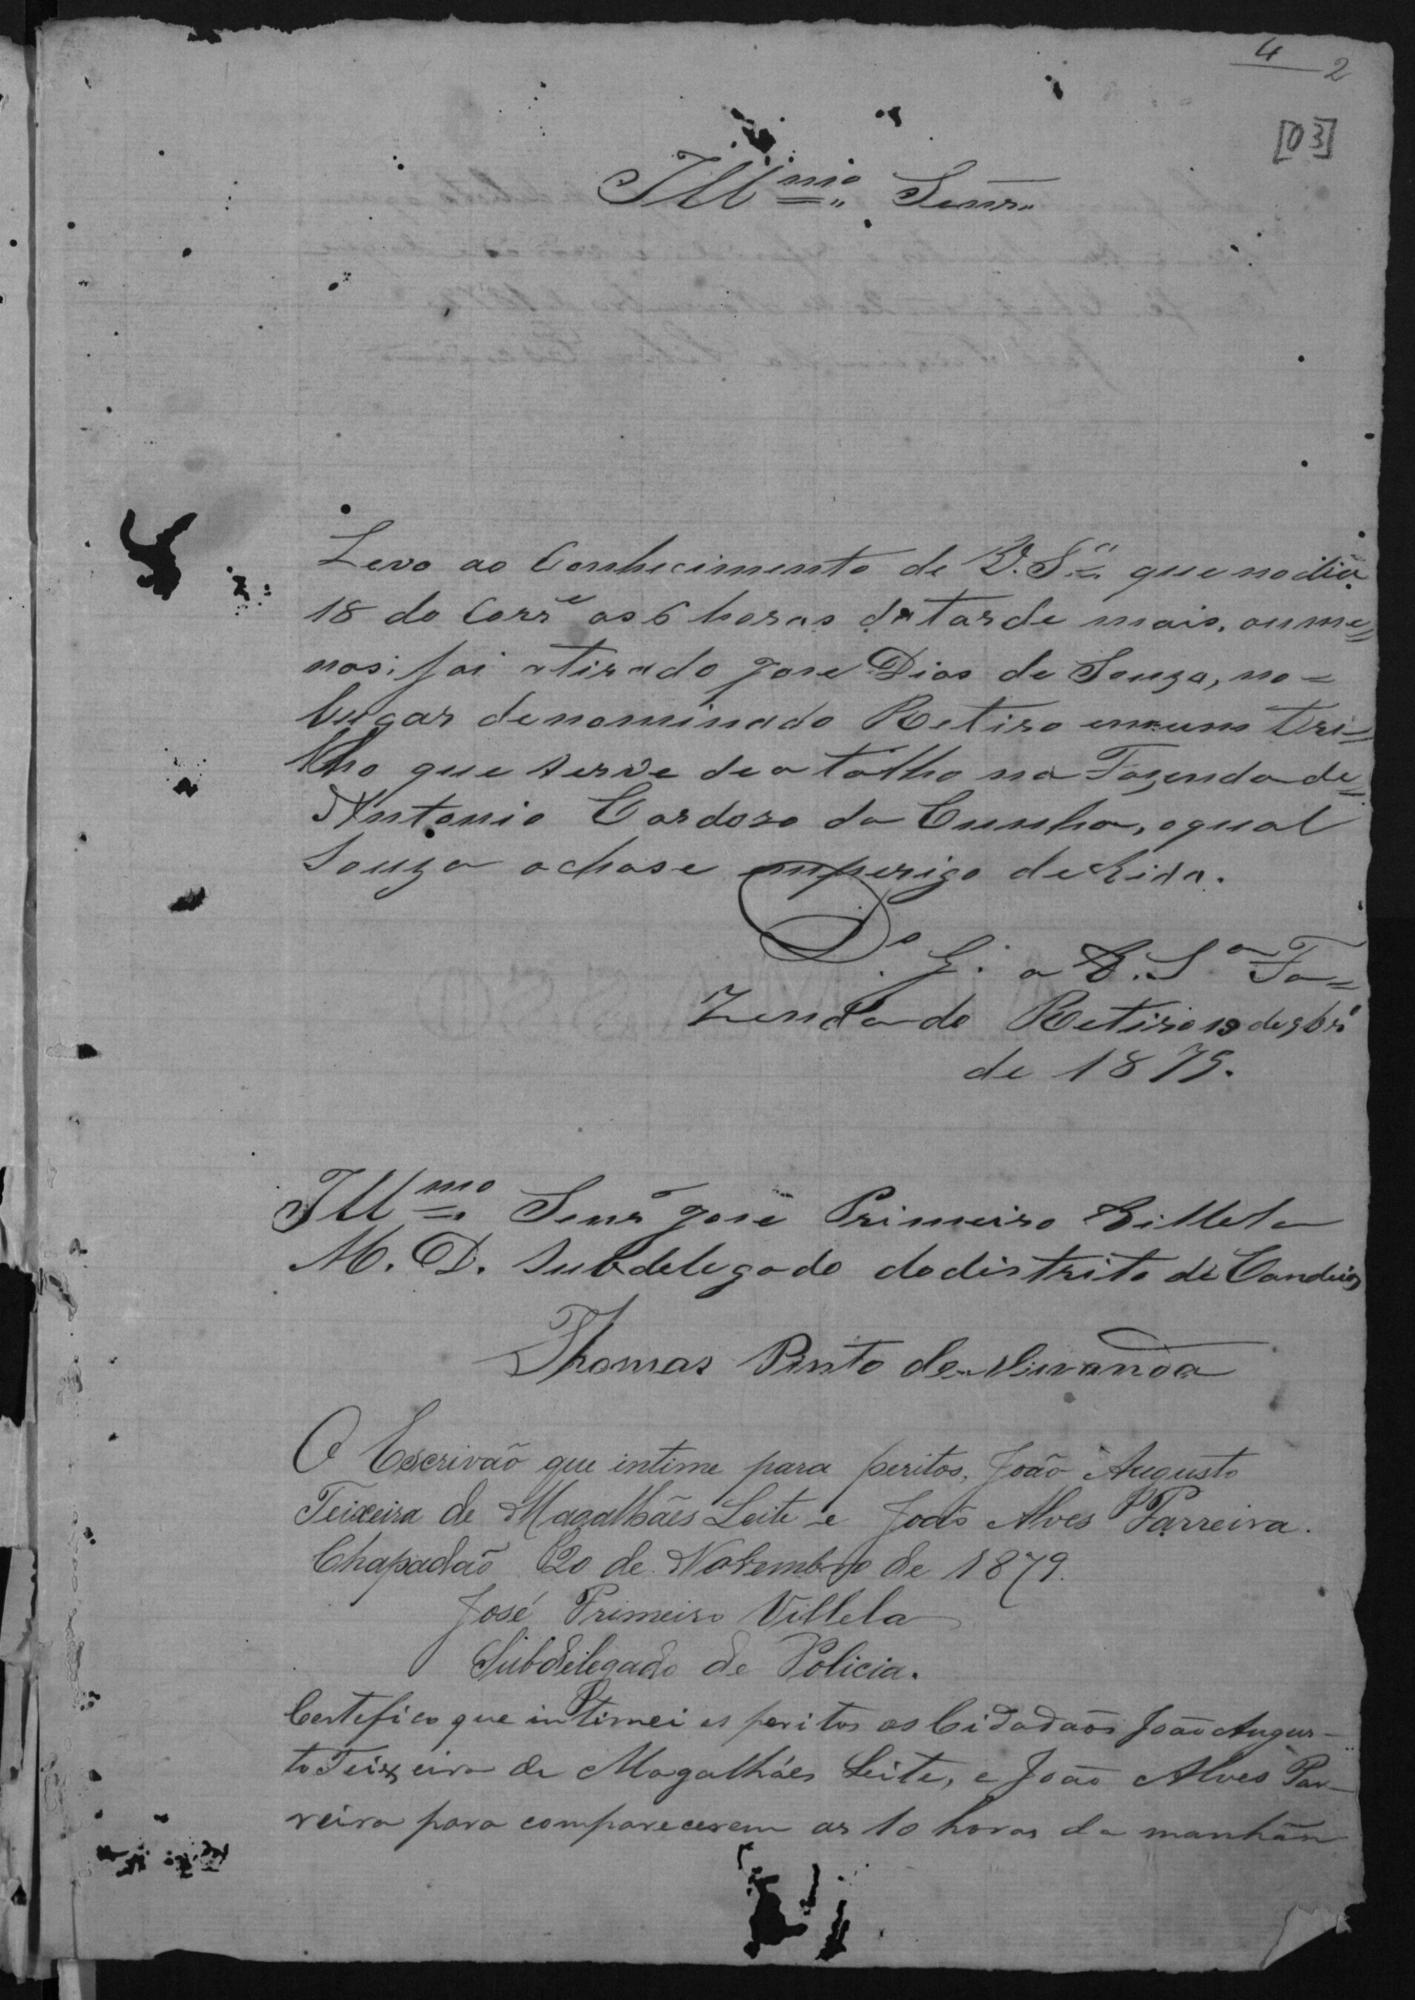 4 2
[03]
Illmo Senr.
Levo ao Conhecimento de V. Sa que no dia
18 do Corre as 6 horas da tarde mais, ou me=
nos; foi atirado Jose Dias de Souza, no=
lugar denominado Retiro em um tri=
lho que serve de atalho na Fazenda de=
Antonio Cardozo da Cunha, o qual
Souza achase emperigo de vida.
Do G. a V. Sa Fa=
zenda do Retiro 19 de 9bro
de 1879.
Illmo Senr Jose Primeiro Villela
M. D. Subdelegado do distrito de Candeias
Thomas Pinto de Miranda
O Escrivão que intime para peritos, João Augusto
Teixeira de Magalhães Leite e João Alves Parreira.
Chapadão 20 de Novembro de 1879.
José Primeiro Villela
Subdelegado de Policia.
Certefico que intimei os peritos os Cidadaõs João Augus-
to Teixeira de Magalhães Leite, e João Alves Par-
reira para comparecerem as 10 horas da manhãn